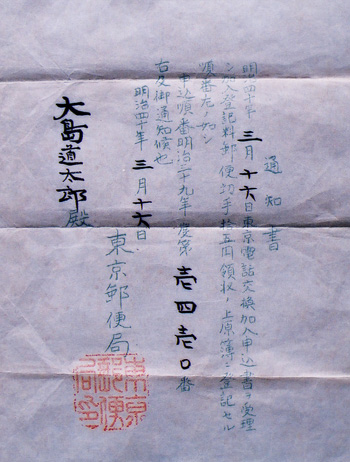 通知書
明治四十年三月十六日東京電話交換加入申込書ヲ受理
シ加入登記料郵便切手拾五円領収ノ上原簿ニ登記セル
順番左ノ如シ
申込順番明治三十九年度第壱四壱〇番
右及御通知候也
明治四十年三月十六日
東京郵便局
大島道太郎殿
東京郵便局印